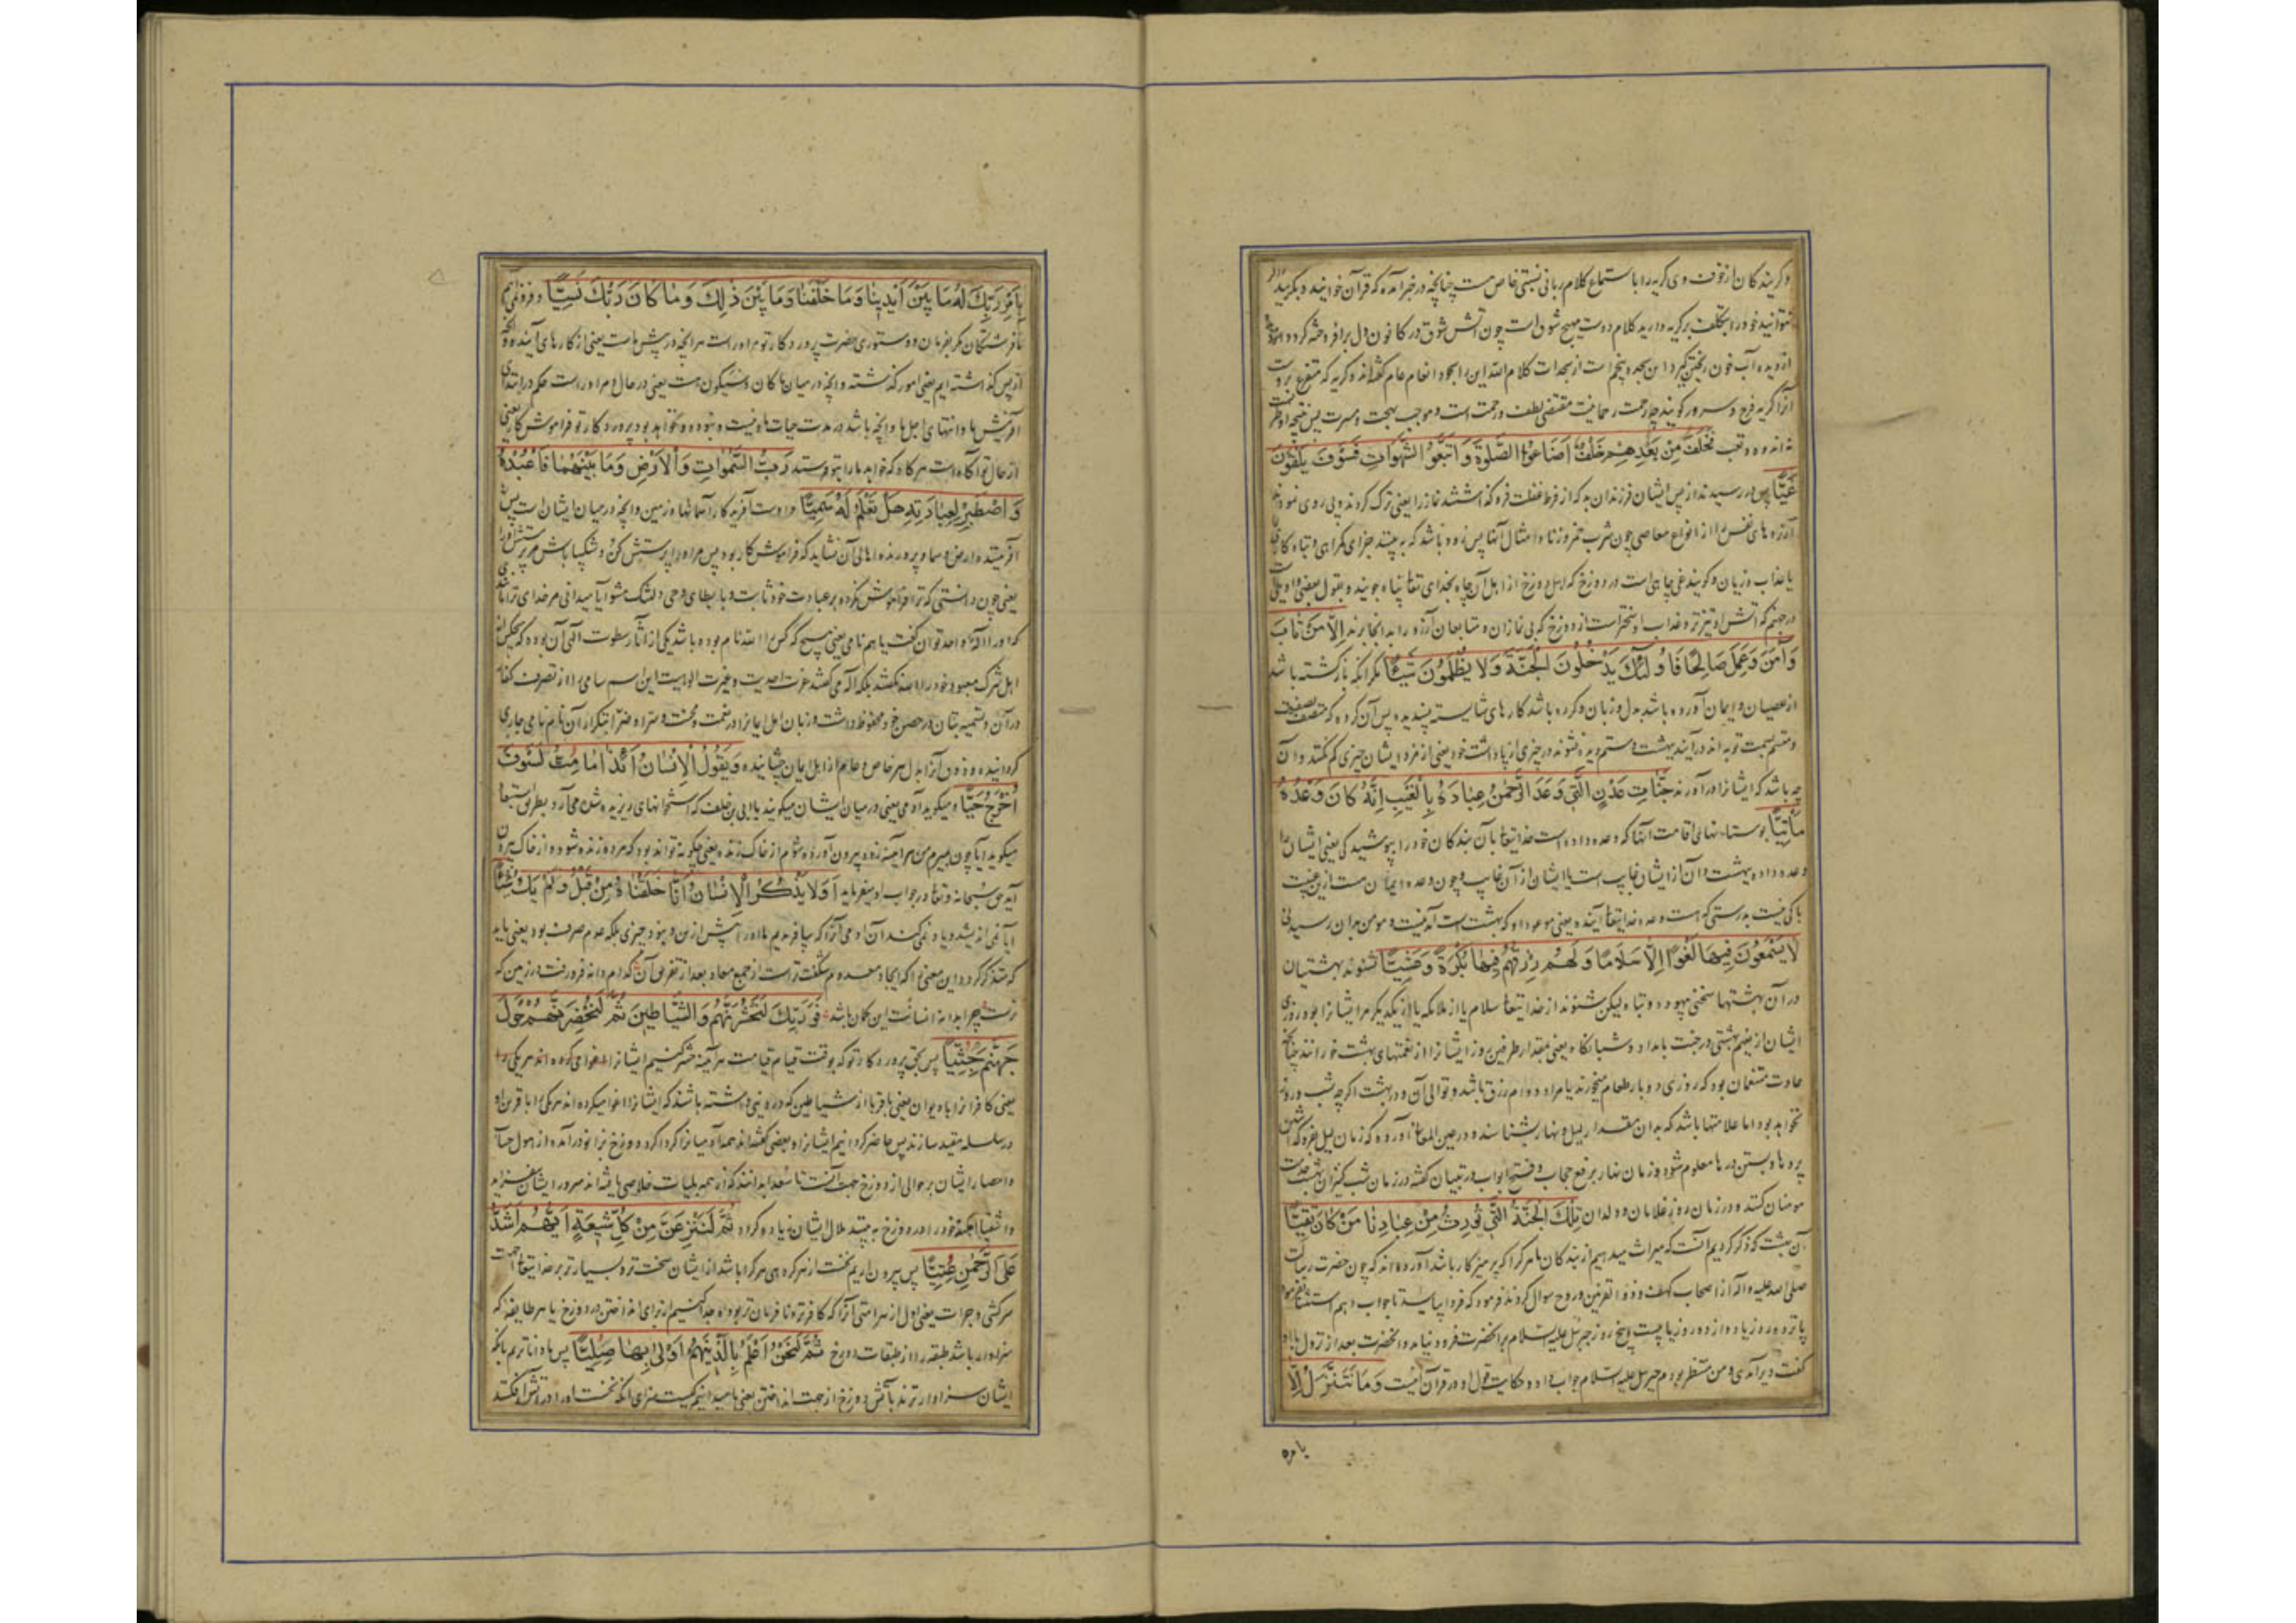 و گریندگان از خوف وی گریه را با استماع کلام ربانی نسبتی خاص است چنانچه در خبر آمده که قرآن خوانید و بگریید
نتوانید خود را بتکلف بر گریه دارید کلام دوست مهیج شوق است چون آتش شوق در کانون دل برافروخته گردد
از دیده آب خون ریختن گیرد این سجده پنجم است از سجدات کلام الله این را سجود انعام عام گفته‌اند و گریه که متفرع بروست
آنرا گریه فرح و سرور گویند چه رحمت رحمانیت مقتضی لطف و رحمت است و موجب بهجت و مسرت پس نتیجه او طرب
نه اندوه و تعب فَخَلَفَ مِنْ بَعْدِهِمْ خَلْفٌ أَضَاعُوا الصَّلٰوةَ وَاتَّبَعُوا الشَّهَوَاتِ فَسَوْفَ يَلْقَوْنَ
غَيًّا پس در رسیدند از پس ایشان فرزندان بد که از فرط غفلت فرو گذاشتند نماز را یعنی ترک کردند و پی روی نمودند
آرزوهای نفس را از انواع معاصی چون شرب خمر و زنا و امثال آنها پس زود باشد که به بینند جزای گمراهی و تباه کاری
یا عذاب و زیان و گویند غی چاهی است در دوزخ که اهل دوزخ از اهل آن چاه بخدای تعا پناه جویند و بقول بعضی وادیی است
در جهنم که آتش او تیزتر و عذاب او سختر است از دوزخ که بی نمازان و متابعان آرزو را بدانجا برند إِلَّا مَنْ تَابَ
وَآمَنَ وَعَمِلَ صَالِحًا فَأُولٰئِكَ يَدْخُلُونَ الْجَنَّةَ وَلَا يُظْلَمُونَ شَيْئًا مگر آنکه بازگشته باشد
از عصیان و ایمان آورده باشد بدل و زبان و کرده باشد کارهای شایسته پسندیده پس آن گروه که متصف بصفت
و متسم بسمت توبه اند در آیند ببهشت و ستم دیده نشوند در چیزی از پاداشت خود یعنی از مزد ایشان چیزی کم نکنند و آن
چه باشد که ایشانرا در آورند جَنَّاتِ عَدْنٍ الَّتِي وَعَدَ الرَّحْمٰنُ عِبَادَهُ بِالْغَيْبِ إِنَّهُ كَانَ وَعْدُهُ
مَأْتِيًّا بوستانهای اقامت آنها که وعده داده است خدایتعا بآن بندگان خود را بپوشیدگی یعنی ایشان را
وعده داده ببهشت و آن از ایشان غایب است یا ایشان از آن غایب و چون وعده ایمان ست ازین غیبت
باکی نیست بدرستی که هست وعده خدایتعا آینده یعنی موعود او که بهشت است آمدنیست و مومن بدان رسیدنی
لَا يَسْمَعُونَ فِيهَا لَغْوًا إِلَّا سَلَامًا وَلَهُمْ رِزْقُهُمْ فِيهَا بُكْرَةً وَعَشِيًّا نشنوند بهشتیان
در آن بهشتها سخنی بیهوده و تباه لیکن شنوند از خدایتعا سلام یا از ملائکه یا از یکدیگر مر ایشانرا بود روزی
ایشان از نعیم بهشتی در جنت بامداد و شبانگاه یعنی بمقدار طرفین روز ایشانرا از نعمتهای بهشت خورانند چنانچه
عادت متنعمان بود که روزی دو بار طعام میخورند یا مراد دوام رزق باشد و توالی آن و در بهشت اگرچه شب و روز
نخواهد بود اما علامتها باشد که بدان مقدار لیل و نهار بشناسند و در عین المعانی آورده که زمان لیل بفرو گذاشتن
پردها و بستن درها معلوم شود و زمان نهار برفع حجاب و فتح ابواب و در تبیان گفته در زمان شب کنیزان بهشت خدمت
مومنان کنند و در زمان روز غلامان و ولدان تِلْكَ الْجَنَّةُ الَّتِي نُورِثُ مِنْ عِبَادِنَا مَنْ كَانَ تَقِيًّا
آن بهشت که ذکر کردیم آنست که میراث میدهیم از بندگان ما هر کرا که پرهیزکار باشد آورده‌اند که چون حضرت رسالت
صلی الله علیه و آله از اصحاب کهف و ذو القرنین و روح سوال کردند فرمود که فردا بیایید تا جواب دهم استثنا نفرمود
پانزده روز یا دوازده روز یا بیست و پنج روز جبرئیل علیه السلام بر آنحضرت فرود نیامد و آنحضرت بعد از نزول با او
گفت دیر آمدی و من منتظر بودم جبرئیل علیه السلام جواب داد و حکایت قول او در قرآن اینست وَمَا نَتَنَزَّلُ إِلَّا
بامره
بِأَمْرِ رَبِّكَ لَهُ مَا بَيْنَ أَيْدِينَا وَمَا خَلْفَنَا وَمَا بَيْنَ ذٰلِكَ وَمَا كَانَ رَبُّكَ نَسِيًّا و فرو نمی‌آییم
ما فرشتگان مگر بفرمان و دستوری حضرت پروردگار تو مر او راست هر آنچه در پیش ماست یعنی از کارهای آینده و آنچه
از پس گذاشته ایم یعنی امور گذشته و آنچه در میان ما کان و سیکون هست یعنی در حال مر او راست حکم در ابتدای
آفرینش ما و انتهای اجل ما و آنچه باشد در مدت حیات ما و نیست و نبوده و نخواهد بود پروردگار تو فراموش کار یعنی
از حال تو آگاه است هر گاه که خواهد ما را بتو فرستد رَبُّ السَّمٰوَاتِ وَالْأَرْضِ وَمَا بَيْنَهُمَا فَاعْبُدْهُ
وَاصْطَبِرْ لِعِبَادَتِهِ هَلْ تَعْلَمُ لَهُ سَمِيًّا و اوست آفریدگار آسمانها و زمین و آنچه در میان ایشان است پس
آفریننده ارض و سما و پرورنده اهالی آن نشاید که فراموش کار بود پس مر او را پرستش کن و شکیبا باش مر پرستش او را
یعنی چون دانستی که ترا فراموش نکرده بر عبادت خود ثابت و بابطای وحی دلتنگ مشو آیا میدانی مر خدای را همنامی
که او را اله واحد توان گفت یا هم نامی یعنی هیچ کس را الله نام بوده باشد یکی از آثار سطوت الهی آن بوده که هیچکس از
اهل شرک معبود خود را الله نگفتند بلکه اله می‌گفتند عزت احدیت و غیرت الوهیت این اسم سامی را از تصرف کفار
در آن و تسمیه بتان در حصن خود محفوظ داشت و زبان اهل ایمانرا در نعمت و محنت و سرا و ضرا بتکرار آن نام نامی جاری
گردانیده و ذوق آنرا بدل هر خاص و عام از اهل ایمان چشانیده وَيَقُولُ الْإِنْسَانُ أَئِذَا مَا مِتُّ لَسَوْفَ
أُخْرَجُ حَيًّا و میگوید آدمی یعنی در میان ایشان میگویند یا ابی بن خلف که استخوانهای ریزیده پیش می‌آرد و بطریق استبعاد
میگوید آیا چون بمیرم من هر آینه زود بیرون آورده شوم از خاک زنده یعنی چگونه تواند بود که مرده زنده شود و از خاک بیرون
آید حق سبحانه و تعا در جواب او میفرماید أَوَلَا يَذْكُرُ الْإِنْسَانُ أَنَّا خَلَقْنَاهُ مِنْ قَبْلُ وَلَمْ يَكُ شَيْئًا
آیا نمی‌اندیشد و یاد نمی‌کند آن آدمی آنرا که بیافریدیم ما او را پیش ازین و نبود چیزی بلکه عدم صرف بود یعنی باید
که متذکر گردد این معنی را که ایجاد معدوم شگفت‌تر است از جمع مواد بعد از تفریق آن کدام دانه فرو رفت در زمین که
نرست چرا بدانه انسانت این گمان باشد فَوَرَبِّكَ لَنَحْشُرَنَّهُمْ وَالشَّيَاطِينَ ثُمَّ لَنُحْضِرَنَّهُمْ حَوْلَ
جَهَنَّمَ جِثِيًّا پس بحق پروردگار تو که بوقت قیام قیامت هر آینه حشر کنیم ایشانرا
یعنی کافرانرا با دیوان یعنی با قربا از شیاطین که در دنیا داشته باشند که ایشانرا اغوا میکرده‌اند هر یکی را با قرین او
در سلسله مقید سازند پس حاضر گردانیم ایشانرا و بعضی گفته‌اند همه آدمیانرا گرداگرد دوزخ بزانو در آمده از هول حساب
و احضار ایشان بر حوالی از دوزخ جهت آنست تا سعدا بدانند که از چه بلیات خلاصی یافته‌اند سرور ایشان بیفزاید
و اشقیا امکنه خود را در دوزخ به بینند ملال ایشان زیاده گردد ثُمَّ لَنَنْزِعَنَّ مِنْ كُلِّ شِيعَةٍ أَيُّهُمْ أَشَدُّ
عَلَى الرَّحْمٰنِ عِتِيًّا پس بیرون آریم نخست از هر گروهی هر کرا باشد از ایشان سخت‌تر و بسیارتر بر خدایتعا از جهت
سرکشی و جرات یعنی اول از هر امتی آنرا که کافرتر و نافرمان‌تر بود جدا کنیم از برای انداختن در دوزخ یا هر طایفه که
سزاوار باشد بطبقه از طبقات دوزخ ثُمَّ لَنَحْنُ أَعْلَمُ بِالَّذِينَ هُمْ أَوْلَىٰ بِهَا صِلِيًّا پس ما داناتریم بآنکه
ایشان سزاوارترند بآتش دوزخ از جهت انداختن یعنی ما میدانیم که کیست سزای آنکه نخست او را در آتش افکنند